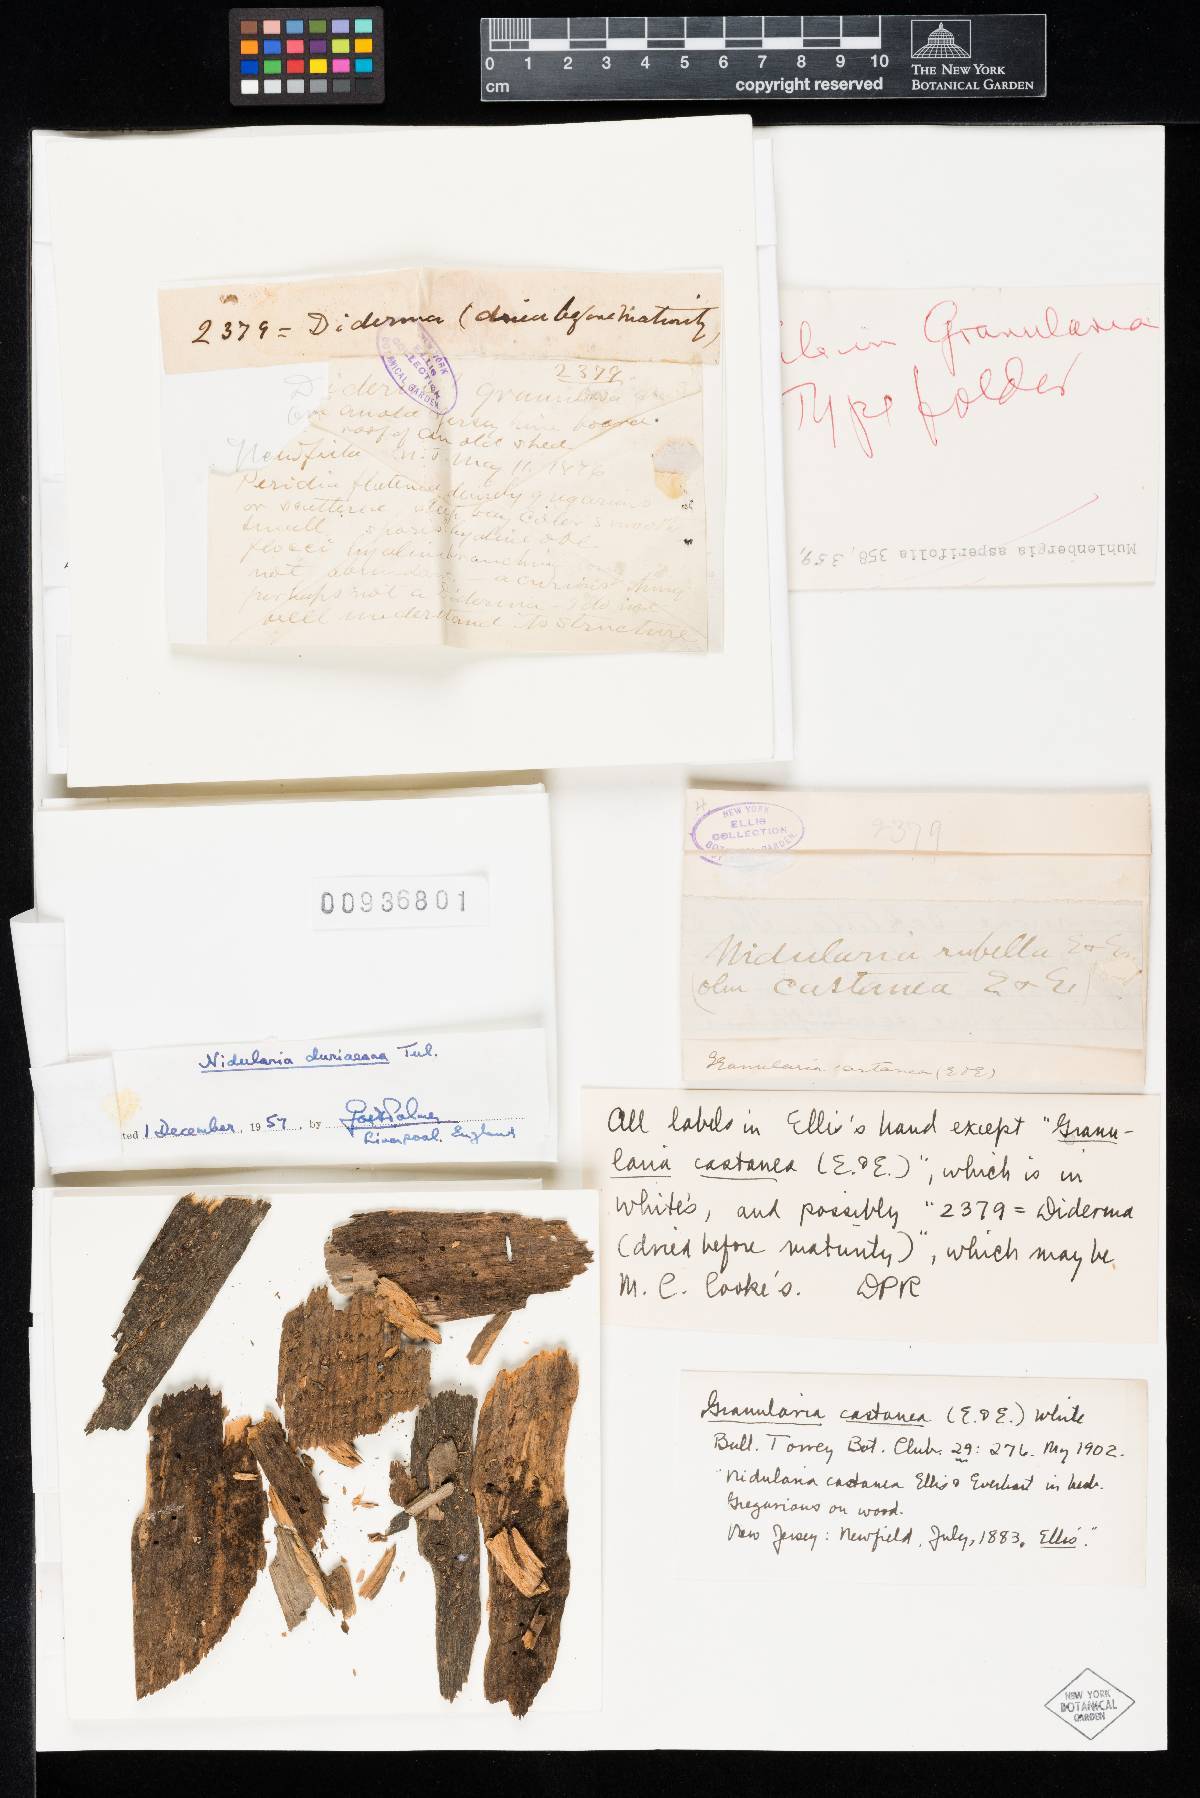 0 1 2 3 4 5 6 7 8 9 10
cm
copyright reserved
THE NEW YORK
BOTANICAL GARDEN
2379 = Diderma (dried before maturity)
NEW YORK
ELLIS
COLLECTION
BOTANICAL GARDEN
2379
Diderma granulosa
On an old Jersey pine board
roof of an old shed
Newfield N.J. May 11, 1876
Peridia flattened densely gregarious
or scattering color smooth
small spores hyaline
flocci hyaline branching
not abundant - a curious thing
perhaps not a Diderma - I do not
well understand its structure
in Granularia
Type folder
Muhlenbergia asperifolia 358, 359,
NEW YORK
ELLIS
COLLECTION
BOTANICAL GARDEN
2379
Nidularia rubella E & E.
(olim castanea E & E.)
Granularia castanea (E & E)
00936801
Nidularia duriaeana Tul.
ted 1 December, 1957, by
Liverpool, England
All labels in Ellis's hand except "Granu-
laria castanea (E. & E.)", which is in
White's, and possibly "2379 = Diderma
(dried before maturity)", which may be
M. C. Cooke's. DPR
Granularia castanea (E. & E.) White
Bull. Torrey Bot. Club. 29: 276. My 1902.
"Nidularia castanea Ellis & Everhart in herb.
Gregarious on wood.
New Jersey: Newfield, July, 1883, Ellis".
NEW YORK
BOTANICAL
GARDEN